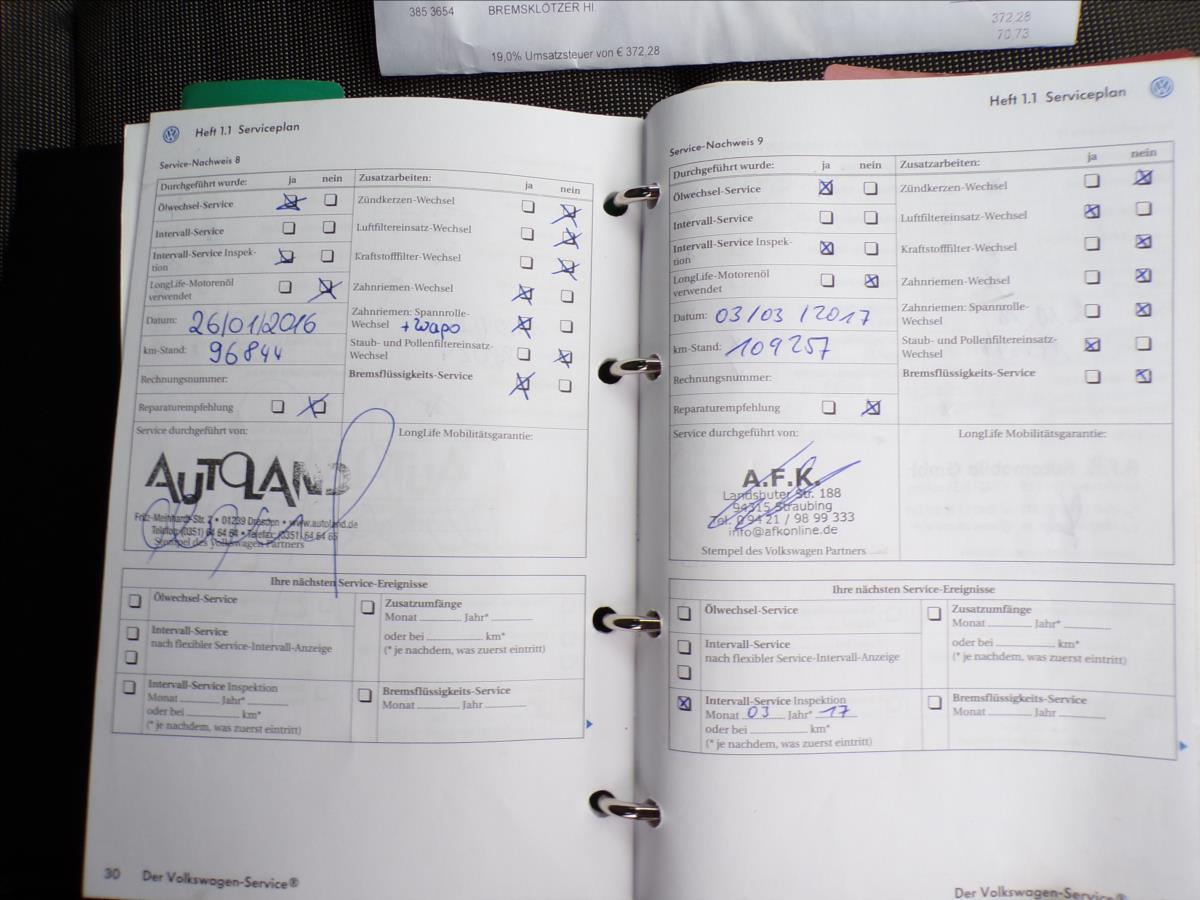 385 3654 BREMSKLÖTZER HI.
372.28
70,73
19,0% Umsatzsteuer von € 372,28
Heft 1.1 Serviceplan
Service-Nachweis 8
Durchgeführt wurde: ja nein
Ölwechsel-Service
Intervall-Service
Intervall-Service Inspek-
tion
LongLife-Motorenöl
verwendet
Datum: 26/01/2016
km-Stand: 96844
Rechnungsnummer:
Reparaturempfehlung
Zusatzarbeiten: ja nein
Zündkerzen-Wechsel
Luftfiltereinsatz-Wechsel
Kraftstofffilter-Wechsel
Zahnriemen-Wechsel
Zahnriemen: Spannrolle-
Wechsel + Wapo
Staub- und Pollenfiltereinsatz-
Wechsel
Bremsflüssigkeits-Service
Service durchgeführt von:
AUTOLAND
Fritz-Meinhardt-Str. 2 • 01239 Dresden • www.autoland.de
Telefon: (0351) 64 64 64 • Telefax: (0351) 64 64 65
Stempel des Volkswagen Partners
LongLife Mobilitätsgarantie:
Ihre nächsten Service-Ereignisse
Ölwechsel-Service
Intervall-Service
nach flexibler Service-Intervall-Anzeige
Intervall-Service Inspektion
Monat Jahr*
oder bei km*
(* je nachdem, was zuerst eintritt)
Zusatzumfänge
Monat Jahr*
oder bei km*
(* je nachdem, was zuerst eintritt)
Bremsflüssigkeits-Service
Monat Jahr
30 Der Volkswagen-Service®
Heft 1.1 Serviceplan
Service-Nachweis 9
Durchgeführt wurde: ja nein
Ölwechsel-Service
Intervall-Service
Intervall-Service Inspek-
tion
LongLife-Motorenöl
verwendet
Datum: 03/03/2017
km-Stand: 109257
Rechnungsnummer:
Reparaturempfehlung
Zusatzarbeiten: ja nein
Zündkerzen-Wechsel
Luftfiltereinsatz-Wechsel
Kraftstofffilter-Wechsel
Zahnriemen-Wechsel
Zahnriemen: Spannrolle-
Wechsel
Staub- und Pollenfiltereinsatz-
Wechsel
Bremsflüssigkeits-Service
Service durchgeführt von:
A.F.K.
Landshuter Str. 188
94315 Straubing
Tel. 0 94 21 / 98 99 333
info@afkonline.de
Stempel des Volkswagen Partners
LongLife Mobilitätsgarantie:
Ihre nächsten Service-Ereignisse
Ölwechsel-Service
Intervall-Service
nach flexibler Service-Intervall-Anzeige
Intervall-Service Inspektion
Monat 03 Jahr* 17
oder bei km*
(* je nachdem, was zuerst eintritt)
Zusatzumfänge
Monat Jahr*
oder bei km*
(* je nachdem, was zuerst eintritt)
Bremsflüssigkeits-Service
Monat Jahr
Der Volkswagen-Service®